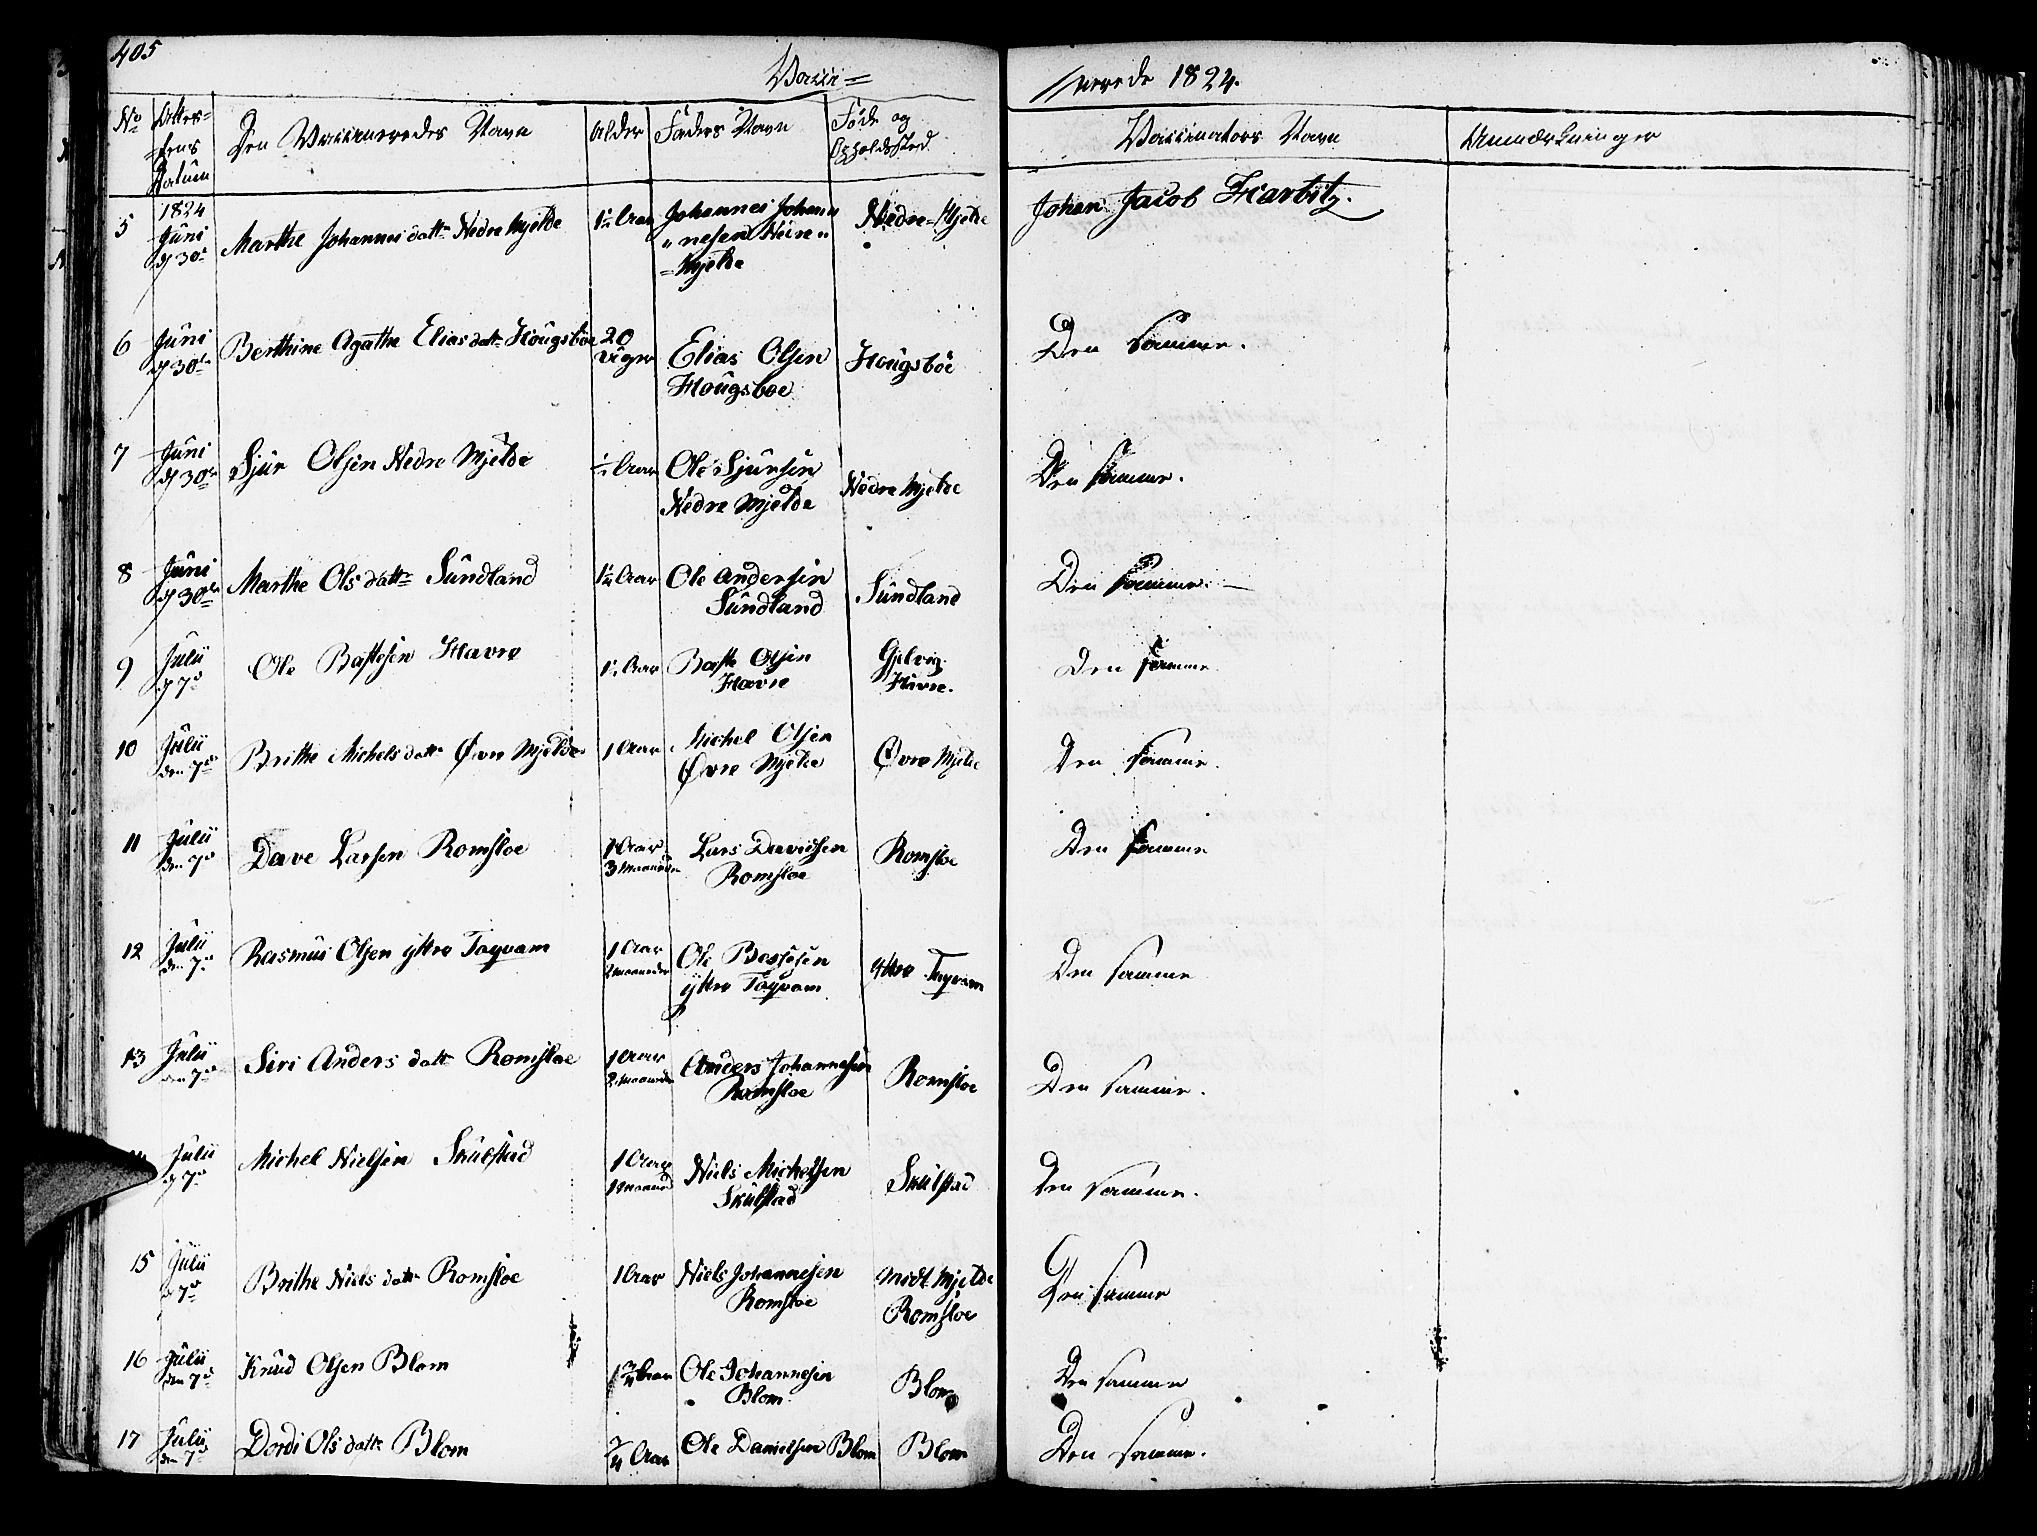 405
Vacci=
nerede 1824.
No Attes= tens Datum Den Vaccineredes Navn Alder Faders Navn Føde og Opholds Sted Vaccinators Navn Anmærkninger
5 1824 Juni d 30te Marthe Johannes datter Nedre Mjelde Aar Johannes Johan= nesen Nedre Mjelde Nedre Mjelde Johan Jacob Harbitz.
6 Juni d 30te Berthine Agathe Elias datter Hougsbøe 20 Uger Elias Olsen Hougsboe Hougsbøe Den samme.
7 Juni d 30te Sjur Olsen Nedre Mjelde Aar Ole Sjursen Nedre Mjelde Nedre Mjelde Den samme.
8 Juni d 30te Marthe Ols datter Sundland Aar Ole Andersen Sundland Sundland Den samme.
9 Julii d 7de Ole Bastesen Havre Aar Baste Olsen Havre Havre. Den samme
10 Julii den 7de Brithe Michels datter Øvre Mjelde 1 Aar Michel Olsen Øvre Mjelde Øvre Mjelde Den samme.
11 Julii den 7de Dave Larsen Romsloe 1 Aar 3 Maaneder Lars Davidsen Romsloe Romsloe Den samme
12 Julii den 7de Rasmus Olsen yttre Toqvam 1 Aar 2 Maaneder Ole yttre Toqvam yttre Toqvam Den samme
13 Julii den 7de Siri Anders datter Romsloe 1 Aar 2 Maaneder Anders Johannesen Romsloe Romsloe Den samme.
Julii d 7de Michel Nielsen Skulstad 1 Aar 1 Maaned Niels Michelsen Skulstad Skulstad Den samme.
15 Julii d 7de Brithe Niels datter Romsloe 1 Aar Niels Johannesen Romsloe Midt Mjelde Romsloe Den samme
16 Julii den 7de Knud Olsen Blom Aar Ole Johannesen Blom Blom Den samme
17 Julii den 7de Dordi Ols datter Blom Aar Ole Danielsen Blom Blom Den samme.